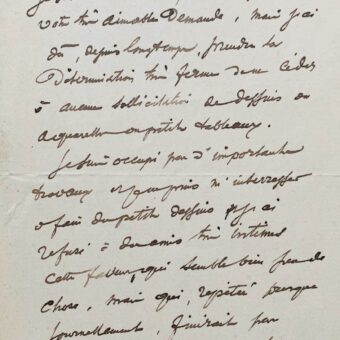 votre très aimable Demande, mais j'ai
dû, depuis longtemps, prendre la
Détermination très ferme de ne céder
à aucune sollicitation de dessins ou
aquarelles ou petits tableaux.
Je suis occupé par d'importants
travaux et je ne puis m'interrompre
à faire de petits dessins et j'ai
refusé à des amis très intimes
cette faveur, qui semble bien peu de
chose, mais qui, répétée presque
journellement, finirait par